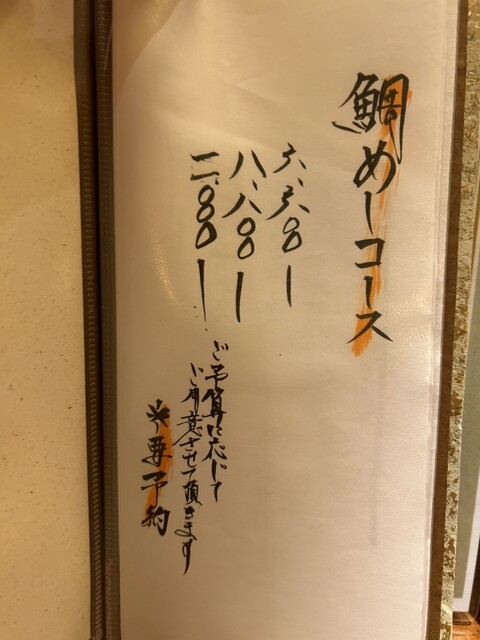 鯛めしコース
六、六〇〇ー
八、八〇〇ー
一一、〇〇〇ー
ご予算に応じて
ご用意させて頂きます
※要予約